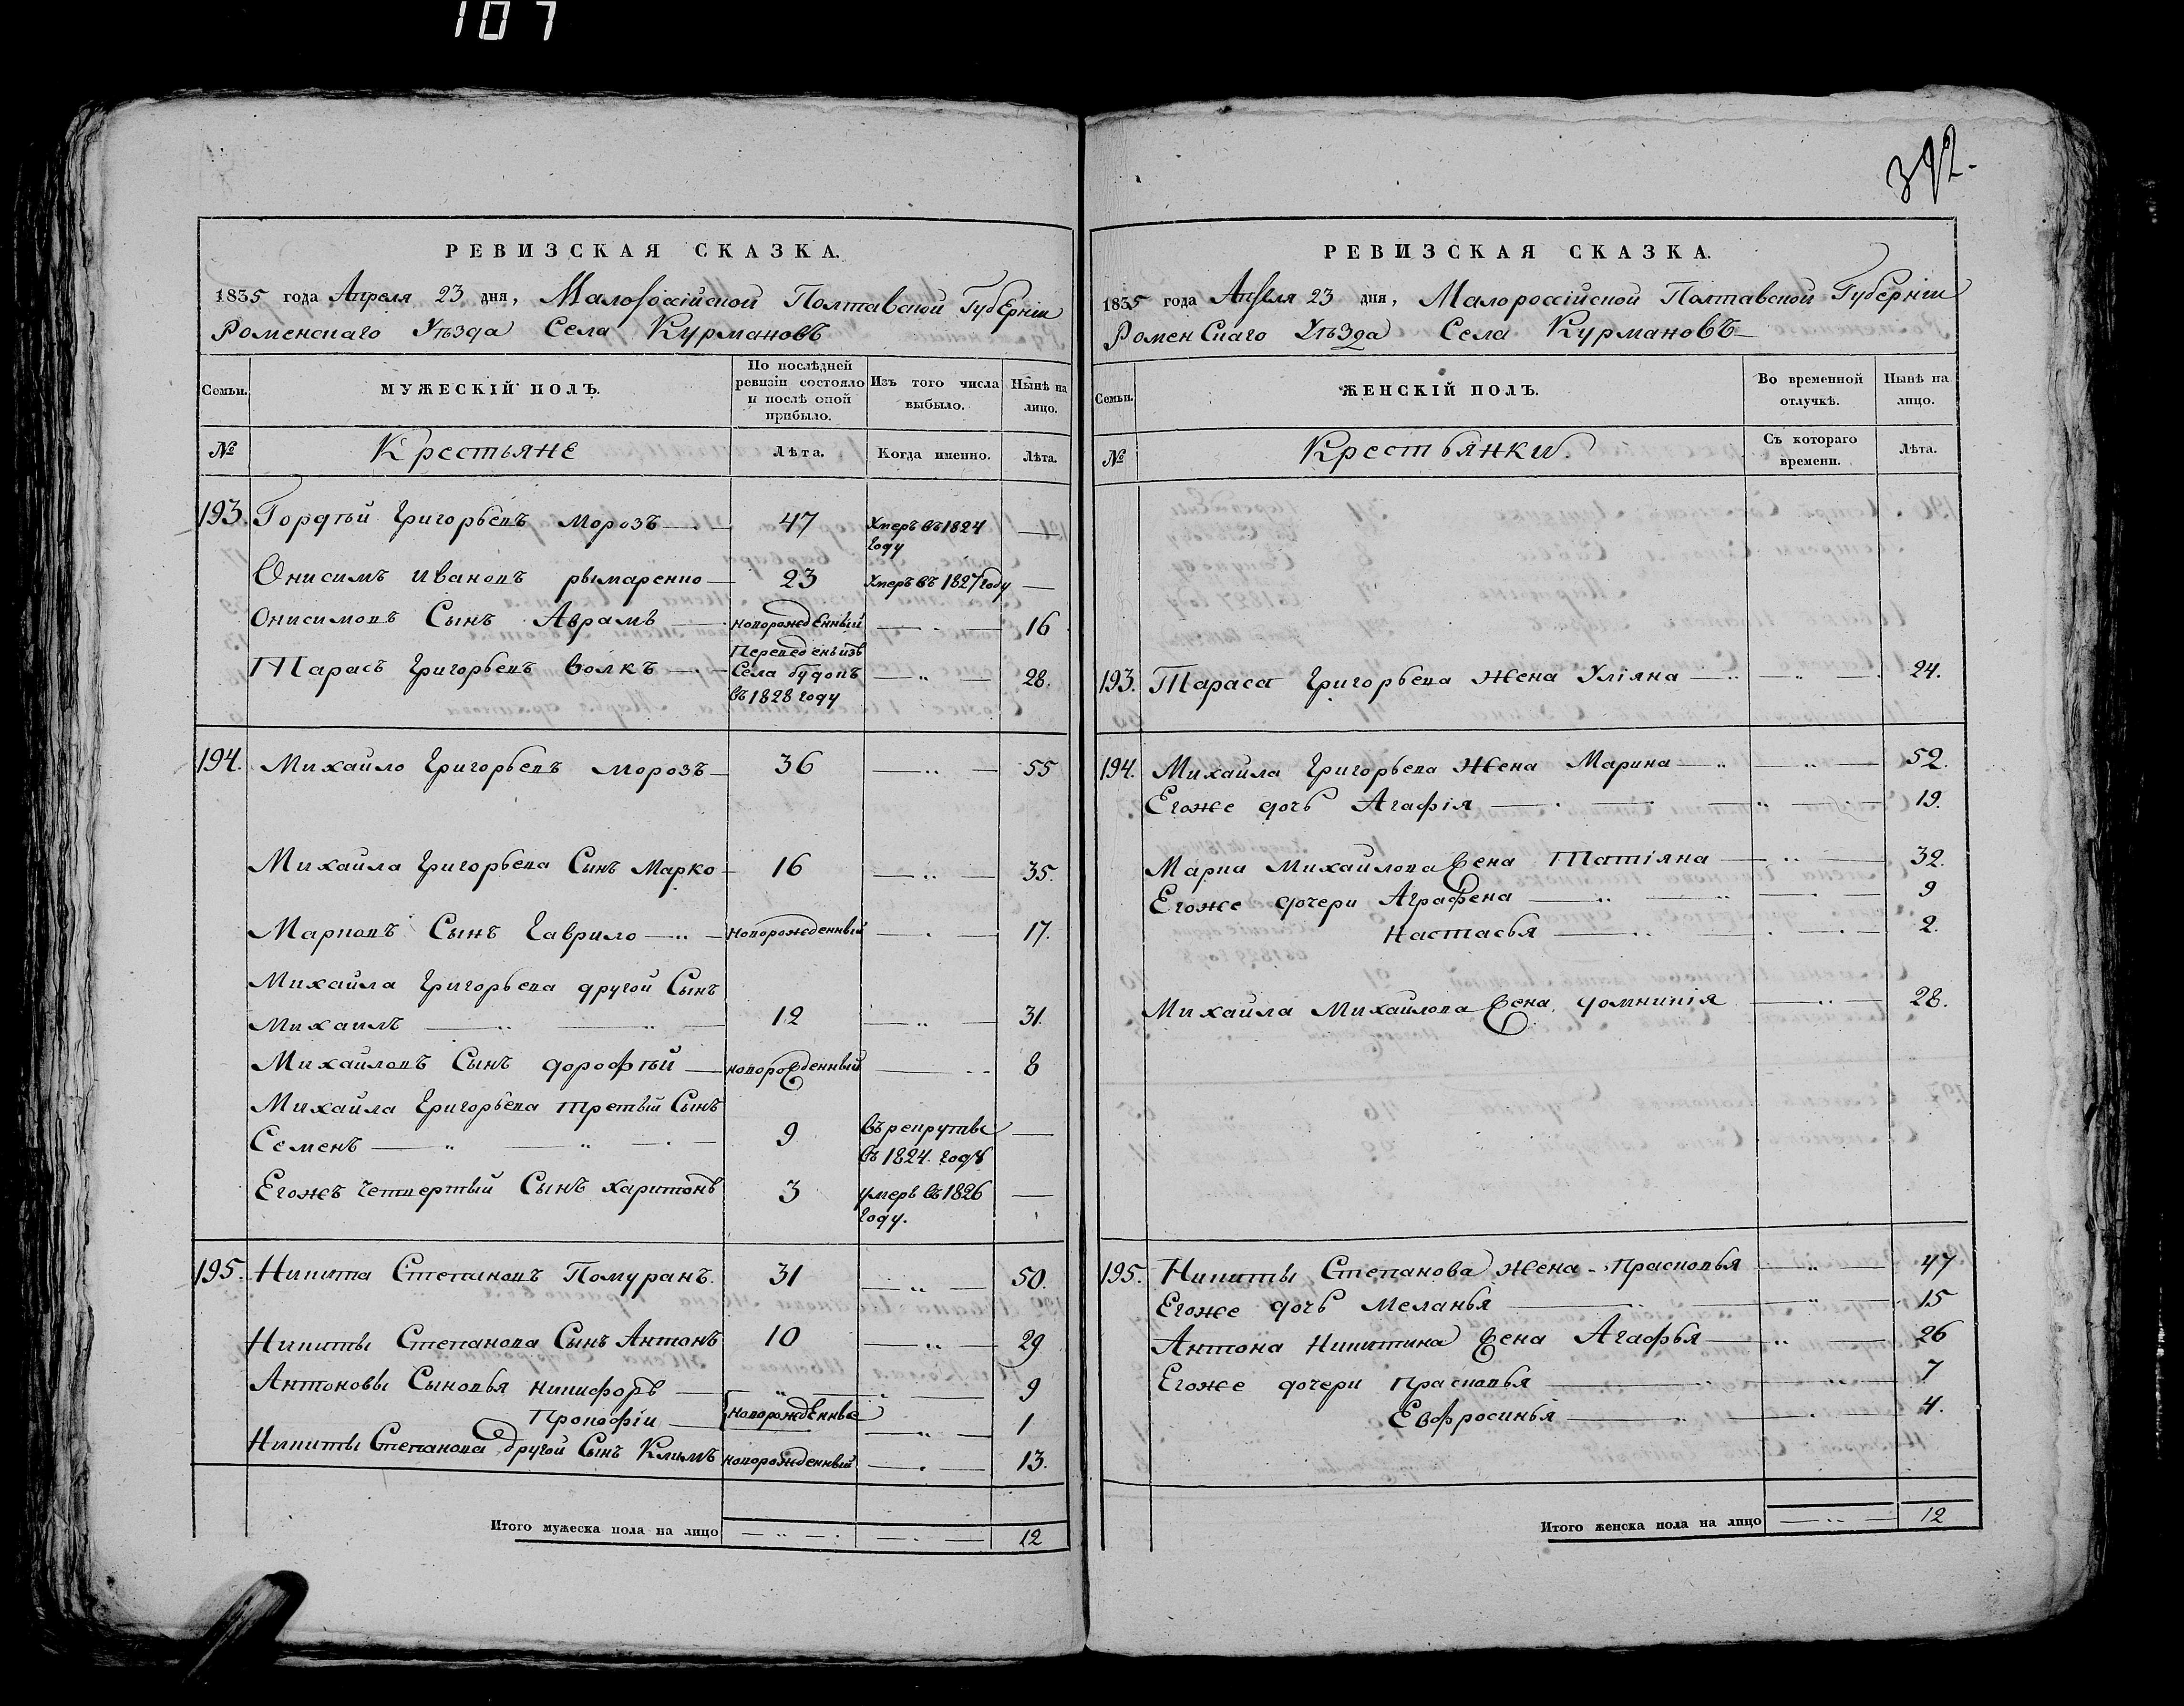 107
392.
РЕВИЗСКАЯ СКАЗКА.
1835 года Апреля 23 дня, Малороссійской Полтавской Губерніи
Роменскаго Уѣзда Села Курмановъ
Семьи.
МУЖЕСКІЙ ПОЛЪ.
По послѣдней ревизіи состояло и послѣ оной прибыло.
Изъ того числа выбыло.
Нынѣ на лицо.
№
Крестьяне
Лѣта.
Когда именно.
Лѣта.
193. Гордѣй Григорьевъ Морозъ — 47 Умеръ въ 1824 году —
Онисимъ Ивановъ Рымаренко — 23 Умеръ въ 1827 году —
Онисимовъ Сынъ Аврамъ — новорожденный — 16
Тарасъ Григорьевъ Волкъ — Переведенъ изъ Села будовъ въ 1828 году — 28.
194. Михайло Григорьевъ Морозъ — 36 — 55
Михайла Григорьева Сынъ Марко — 16 — 35.
Марковъ Сынъ Гаврило — новорожденный — 17.
Михайла Григорьева другой Сынъ
Михаилъ — 12 — 31.
Михайловъ Сынъ дорофѣй — новорожденный — 8
Михайла Григорьева третій Сынъ
Семенъ — 9 въ рекруты въ 1824. годѣ —
Егожъ четвертый Сынъ харитонъ 3 умеръ въ 1826 году. —
195. Никита Степановъ Помуранъ. 31 — 50.
Никиты Степанова Сынъ Антонъ 10 — 29
Антоновы Сыновья никифоръ — 9
Прокофій — новорожденные — 1
Никиты Степанова другой Сынъ Климъ новорожденный — 13.
Итого мужеска пола на лицо — — 12
РЕВИЗСКАЯ СКАЗКА.
1835 года Апреля 23 дня, Малороссійской Полтавской Губерніи
Роменскаго Уѣзда Села Курмановъ
Семьи.
ЖЕНСКІЙ ПОЛЪ.
Во временной отлучкѣ.
Нынѣ на лицо.
№
Крестьянки.
Съ котораго времени.
Лѣта.
193. Тараса Григорьева Жена Уліяна — 24.
194. Михайла Григорьева Жена Марина — 52.
Егоже дочь Агафія — 19.
Марка Михайлова Жена Татіяна — 32.
Егоже дочери Аграфена — 9
Настасья — 2.
Михайла Михайлова Жена, домникія — 28.
195. Никиты Степанова Жена - прасковья — 47
Егоже дочь меланья — 15
Антона Никитина Жена Агафья — 26
Егоже дочери прасковья — 7
Евфросинья — 4.
Итого женска пола на лицо — 12